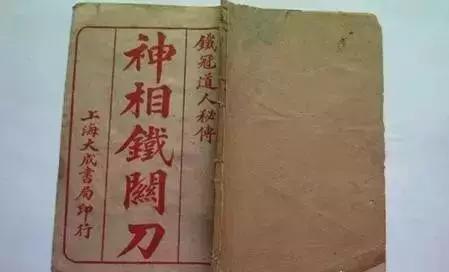 鐵冠道人秘傳
神相鐵關刀
上海大成書局印行